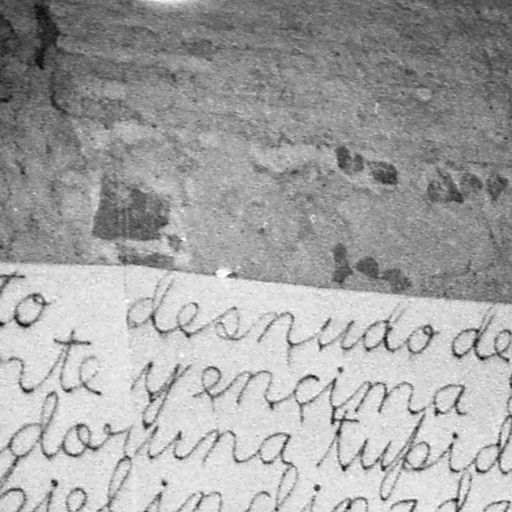 to desnudo de
rte y ençima
dor una tupid
piel indinada